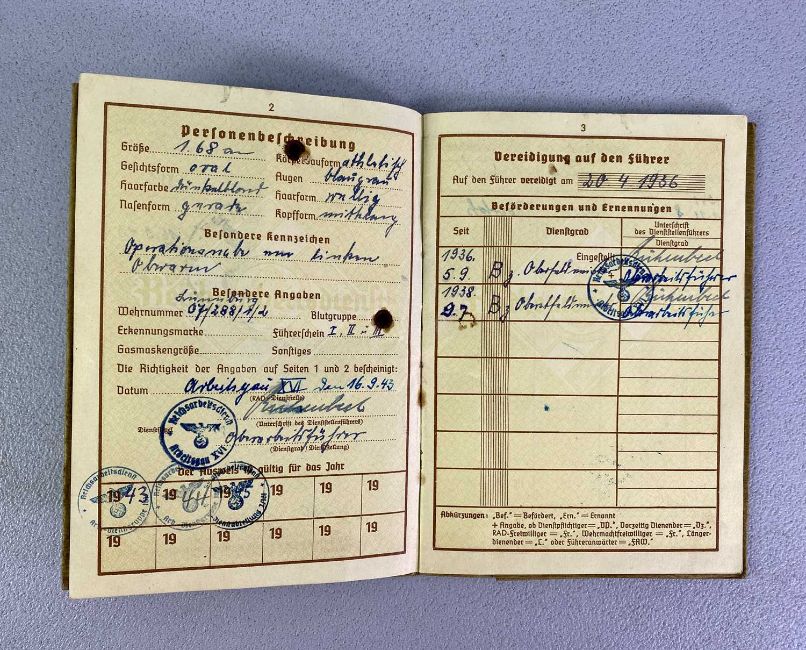 2
Personenbeschreibung
Größe 1.68 cm Körperbauform athletisch
Gesichtsform oval Augen blaugrau
Haarfarbe dunkelblond Haarform wellig
Nasenform gerade Kopfform mittellang
Besondere Kennzeichen
Operationsnabe am linken
Oberarm
Besondere Angaben
Lüneburg
Wehrnummer 07/288/1/2 Blutgruppe
Erkennungsmarke Führerschein I, II u III
Gasmaskengröße Sonstiges
Die Richtigkeit der Angaben auf Seiten 1 und 2 bescheinigt:
Datum Arbeitsgau XVI den 16.9.43
(RAD-Dienststelle)
(Unterschrift des Dienststellenführers)
Dienstsiegel Oberarbeitsführer
(Dienstgrad) (Dienststellung)
Reichsarbeitsdienst
Arbeitsgau XVI
Der Ausweis ist gültig für das Jahr
1943 1944 1945 19 19 19
19 19 19 19 19 19
3
Vereidigung auf den Führer
Auf den Führer vereidigt am 20 4 1936
Beförderungen und Ernennungen
Seit Dienstgrad Unterschrift des Dienststellenführers
Dienstgrad
1936. Eingestellt
5.9. B z. Oberfeldm
Oberarbeitsführer
1938.
9.7 B z.
Abkürzungen: „Bef.“ = Befördert, „Ern.“ = Ernannt
+ Angabe, ob Dienstpflichtiger = „DD.“, Vorzeitig Dienender = „Dz.“,
RAD-Freiwilliger = „Fr.“, Wehrmachtfreiwilliger = „Fr.“, Länger-
dienender = „L.“ oder Führeranwärter = „FAW.“